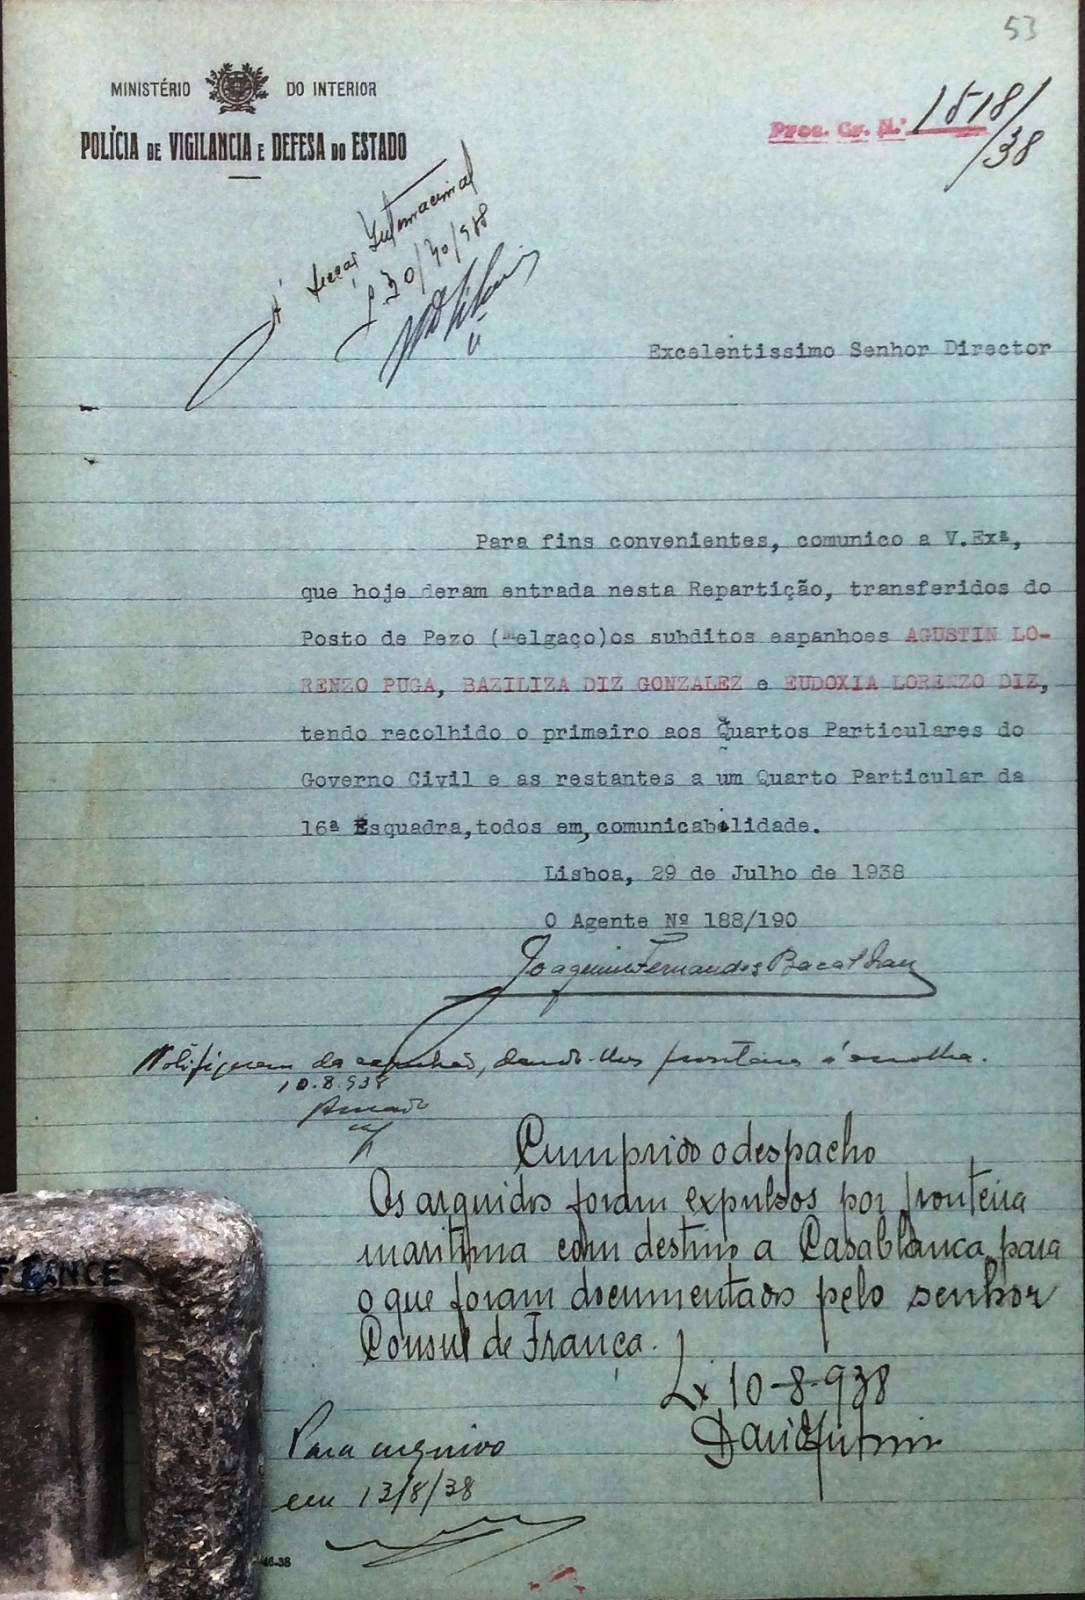 53
MINISTÉRIO DO INTERIOR
POLÍCIA DE VIGILANCIA E DEFESA DO ESTADO
Proc. Gr. N.º 1518/
/38
Á Internacional
Excelentissimo Senhor Director
Para fins convenientes, comunico a V.Exª,
que hoje deram entrada nesta Repartição, transferidos do
Posto de Pezo (Melgaço)os subditos espanhoes AGUSTIN LO-
RENZO PUGA, BAZILIZA DIZ GONZALEZ e EUDOXIA LORENZO DIZ,
tendo recolhido o primeiro aos Quartos Particulares do
Governo Civil e as restantes a um Quarto Particular da
16ª Esquadra,todos em,comunicabilidade.
Lisboa, 29 de Julho de 1938
O Agente Nº 188/190
Joaquim Fernandes
da expulsão, dando-lhes fronteira á escolha.
10.8.938
Cumprido o despacho
Os arguidos foram expulsos por fronteira
maritima com destino a Casablanca, para
o que foram documentados pelo senhor
Consul de França.
Lx 10-8-938
Para arquivo
em 13/8/38
FRANCE
46-38